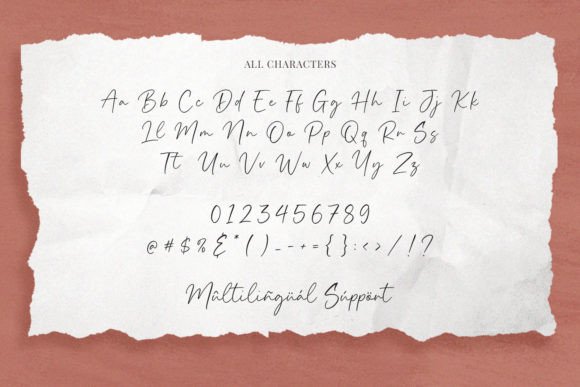 ALL CHARACTERS
Aa Bb Cc Dd Ee Ff Gg Hh Ii Jj Kk
Ll Mm Nn Oo Pp Qq Rr Ss
Tt Uu Vv Ww Xx Yy Zz
0123456789
@ # $ % & * ( ) _ - + = { } : < > / ! ?
Mûltilíñgüál Súppört